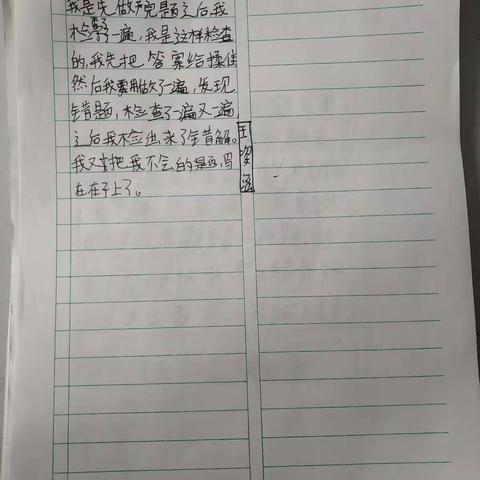 我是先做完题之后,我
检查了一遍,我是这样检查
的,我先把答案给揉住
然后我重做了一遍,发现
错题,检查了一遍又一遍,
之后我检出来了错解。
我又把我不会的题写
在本子上了。
王姿涵